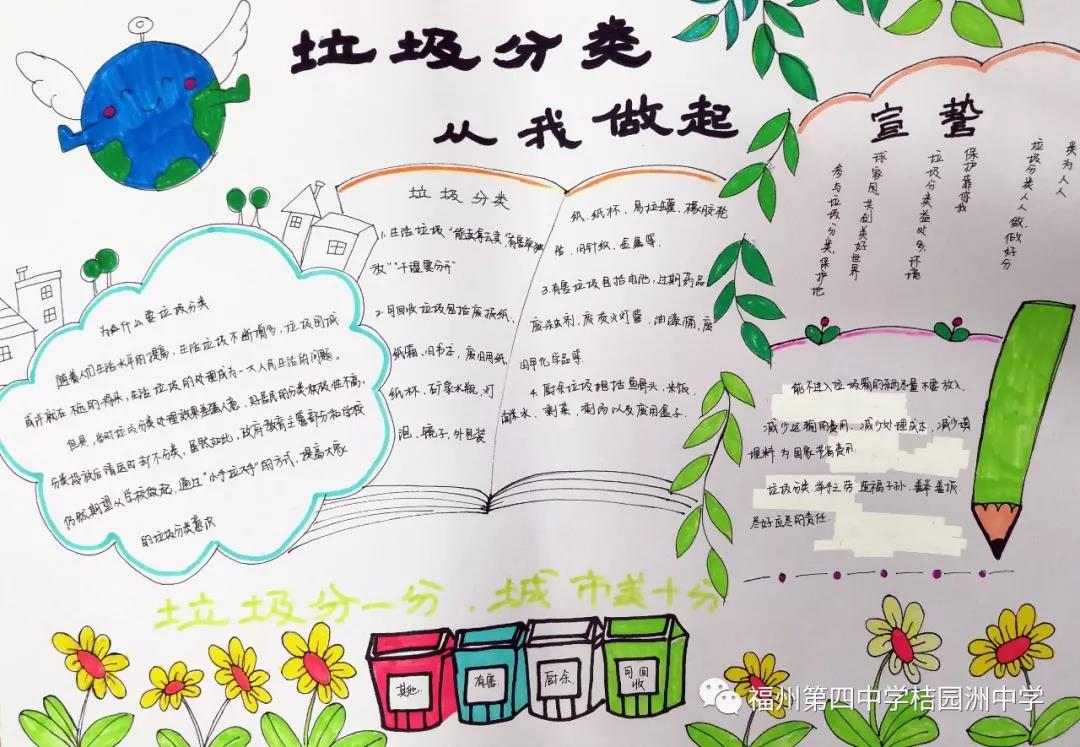 垃圾分类
从我做起
为什么要垃圾分类
随着人们生活水平的提高，生活垃圾不断增多，垃圾围城
或许就在不远的将来，生活垃圾的处理成为一大人民生活的问题。
但是，当时垃圾分类处理效果差强人意，好居民的分类投放性不高，
分类投放后清运时却不分类，虽然如此，政府教育主管部分和学校
仍然期望从学校做起，通过“小手拉大手”的方式，提高大家
的垃圾分类意识
垃圾分类
1.生活垃圾“能卖拿去卖”有害单独
放”“干湿要分开”
2.可回收垃圾包括废报纸、
纸箱、旧书本，废旧用纸、
纸杯、矿泉水瓶，灯
泡、镜子，外包装
纸、纸杯，易拉罐，橡胶轮
胎，旧针织、金属等.
3.有害垃圾包括电池，过期药品
废杀虫剂.废荧火灯管，油漆桶，废
旧甲化学品等.
4.厨余垃圾相括鱼骨头、米饭、
咸水、剩菜、剩汤以及废用盒子.
宣誓
类为人人
垃圾分类人人做，做好分
保护靠你我
垃圾分类益处多，环境
球家园，共创美好世界
参与垃圾分类，保护地
能不进入垃圾箱的东西尽量不要放入，
减少运输用费用.减少处理成本，减少填
埋料为国家节省费用.
垃圾分类举手之劳 造福子孙.
尽好应尽的责任.
垃圾分一分，城市美十分
其他
有害
厨余
可回
收
福州第四中学桔园洲中学